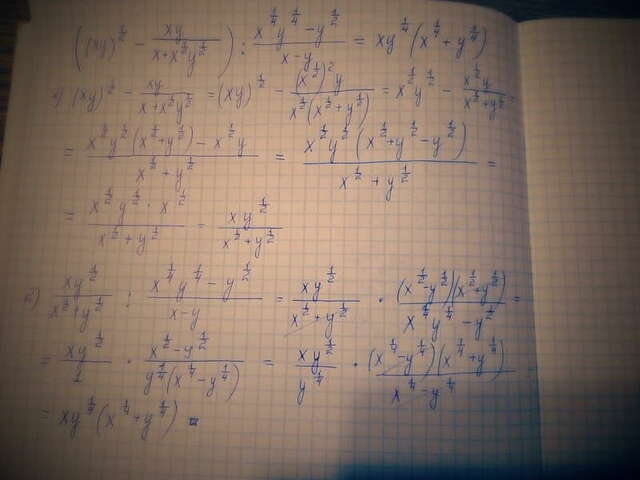 ((xy)^½ − xy/(x+x^½y^½)) : (x^¼y^¼ − y^½)/(x−y) = xy^¼(x^¼+y^¼)
1) (xy)^½ − xy/(x+x^½y^½) = (xy)^½ − (x^½)²y/(x^½(x^½+y^½)) = x^½y^½ − x^½y/(x^½+y^½) =
= (x^½y^½(x^½+y^½) − x^½y)/(x^½+y^½) = x^½y^½(x^½+y^½−y^½)/(x^½+y^½) =
= (x^½y^½ · x^½)/(x^½+y^½) = xy^½/(x^½+y^½)
2) xy^½/(x^½+y^½) : (x^¼y^¼ − y^½)/(x−y) = xy^½/(x^½+y^½) · (x^½−y^½)(x^½+y^½)/(x^¼y^¼−y^½) =
= xy^½/1 · (x^½−y^½)/(y^¼(x^¼−y^¼)) = xy^½/y^¼ · (x^¼−y^¼)(x^¼+y^¼)/(x^¼−y^¼) =
= xy^¼(x^¼+y^¼)